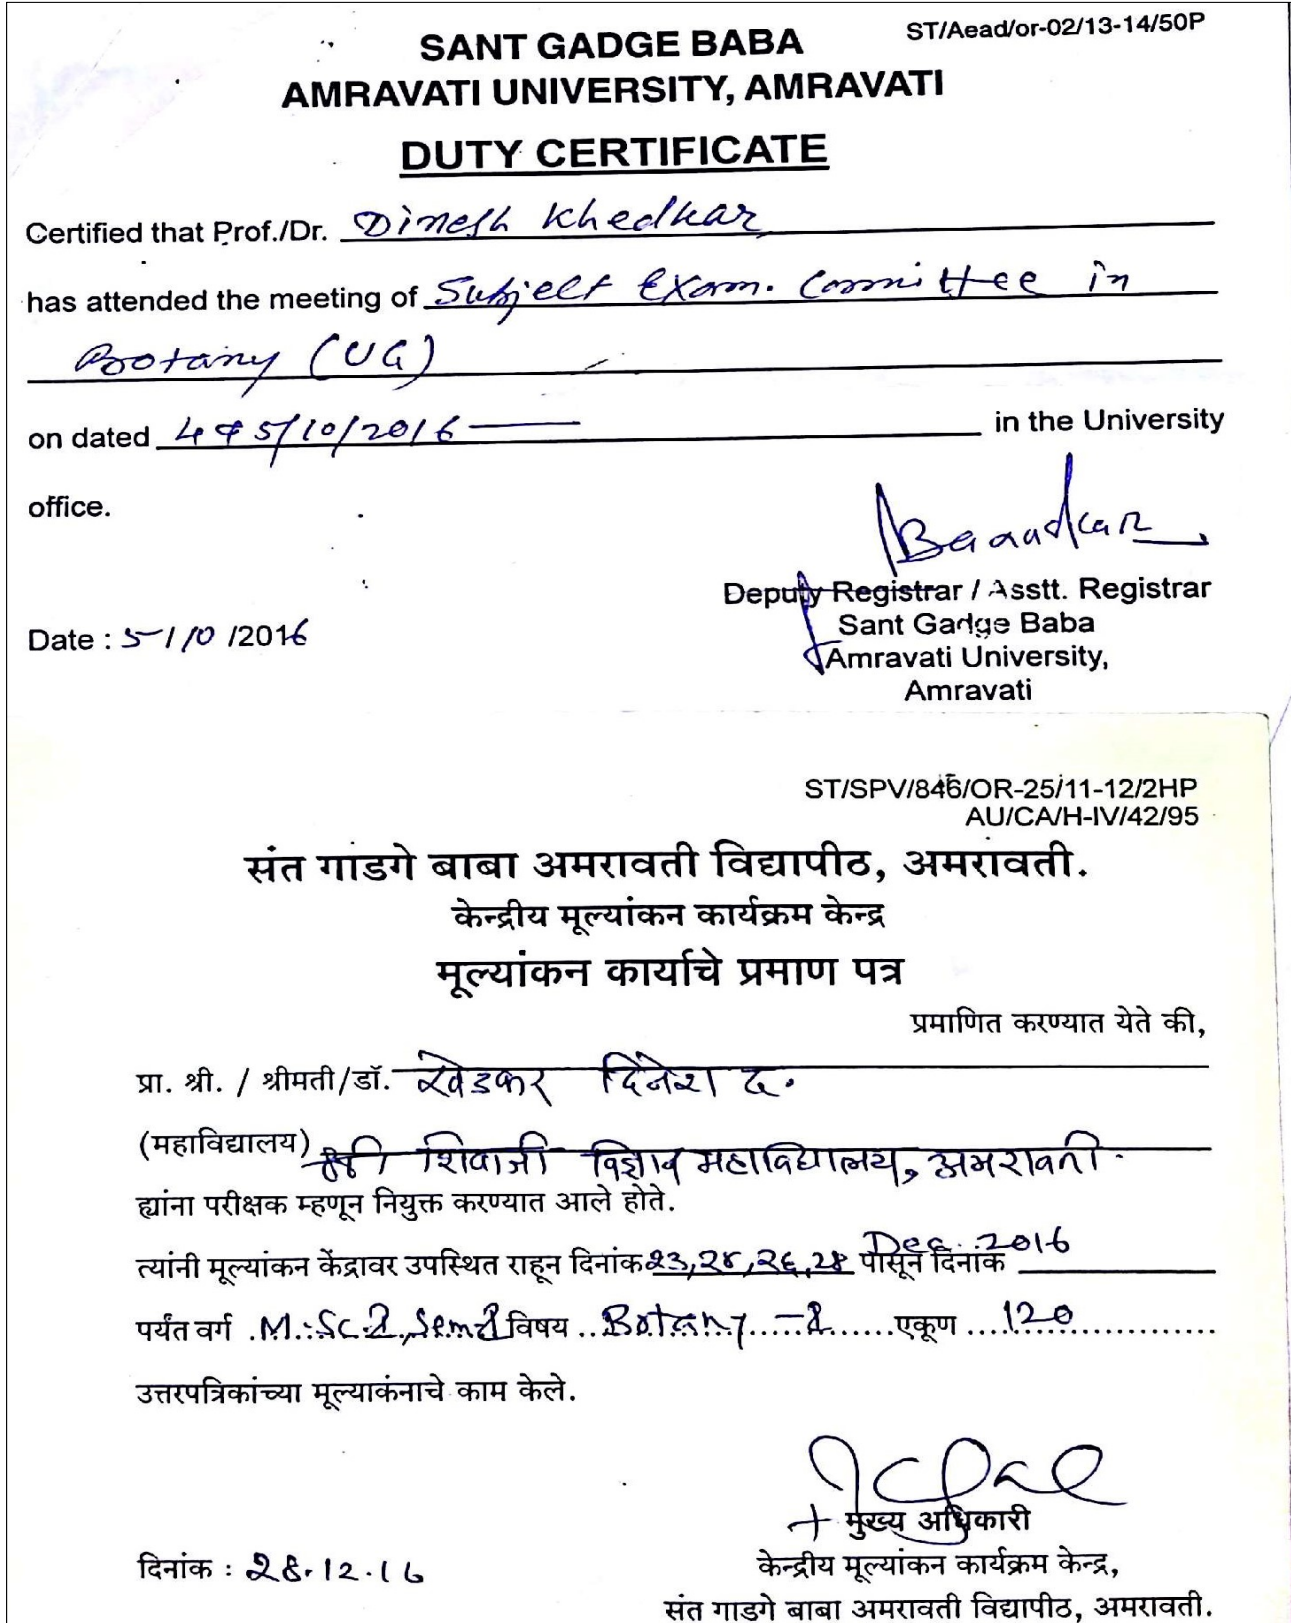 ST/Aead/or-02/13-14/50P
SANT GADGE BABA
AMRAVATI UNIVERSITY, AMRAVATI
DUTY CERTIFICATE
Certified that Prof./Dr. Dinesh Khedkar
has attended the meeting of Subject Exam. Committee in
Botany (UG)
on dated 4 & 5/10/2016 in the University
office.
Deputy Registrar / Asstt. Registrar
Sant Gadge Baba
Date : 5/10/2016
Amravati University,
Amravati
ST/SPV/846/OR-25/11-12/2HP
AU/CA/H-IV/42/95
संत गाडगे बाबा अमरावती विद्यापीठ, अमरावती.
केन्द्रीय मूल्यांकन कार्यक्रम केन्द्र
मूल्यांकन कार्याचे प्रमाण पत्र
प्रमाणित करण्यात येते की,
प्रा. श्री. / श्रीमती/डॉ. खेडकर दिनेश द.
(महाविद्यालय) श्री शिवाजी विज्ञान महाविद्यालय, अमरावती.
ह्यांना परीक्षक म्हणून नियुक्त करण्यात आले होते.
त्यांनी मूल्यांकन केंद्रावर उपस्थित राहून दिनांक २३,२४,२६,२८ Dec. 2016 पासून दिनांक
पर्यंत वर्ग M.Sc. Sem विषय Botany एकूण 120
उत्तरपत्रिकांच्या मूल्याकंनाचे काम केले.
मुख्य अधिकारी
दिनांक : 28.12.16
केन्द्रीय मूल्यांकन कार्यक्रम केन्द्र,
संत गाडगे बाबा अमरावती विद्यापीठ, अमरावती.